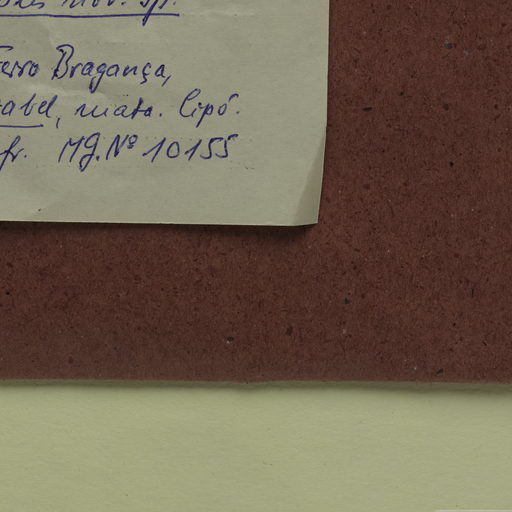 nov. sp.
Ferro Bragança,
abel, mata. Cipó.
fr. MG. Nº 10155